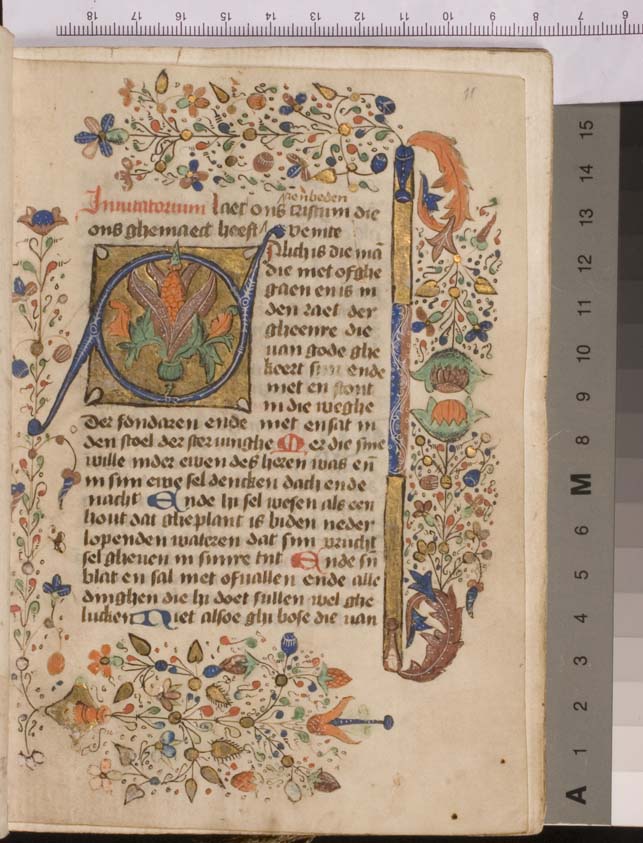 11
aenbeden
Inuitatorium Laet ons cristum die
ons ghemaect heeft venite
alich is die mā
die met of ghe
gaen en is in
den raet der
gheenre die
van gode ghe
keert sin ende
met en stont
in die weghe
der sondaren ende met en sat in
den stoel der steruinghe Mer die sine
wille inder ewen des heren was eñ
in sijn ewe sel dencken dach ende
nacht Ende hi sel wesen als een
hout dat gheplant is biden neder
lopenden wateren dat sijn vrucht
sel gheuen in sinre tijt Ende sijn
blat en sal niet ofuallen ende alle
dinghen die hi doet sullen wel ghe
lucken Niet alsoe ghi bose die van
18 17 16 15 14 13 12 11 10 9 8 7 6
15
14
13
12
11
10
9
8
M
6
5
4
3
2
1
A